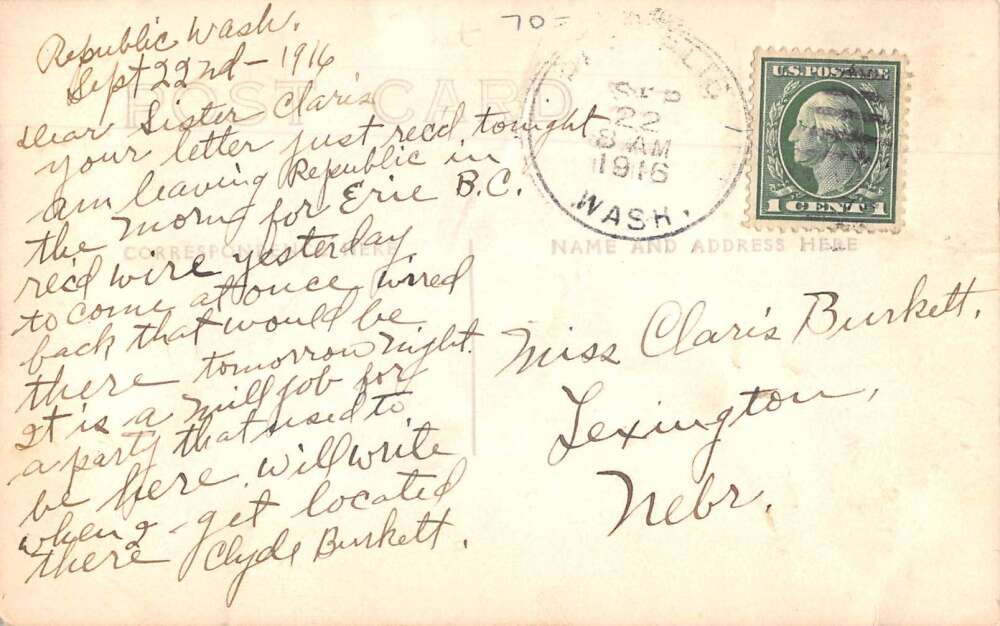 Republic Wash.
Sept 22nd - 1916
Dear Sister Claris
your letter just rec'd tonight
am leaving Republic in
the morng for Erie B.C.
rec'd wire yesterday
to come at once wired
back that would be
there tomorrow night.
It is a mill job for
a party that used to
be here. will write
when I get located
there Clyde Burkett.
POST CARD
CORRESPONDENCE HERE
NAME AND ADDRESS HERE
70=
REPUBLIC
SEP
22
8 AM
1916
WASH.
U.S. POSTAGE
1 CENT 1
Miss Claris Burkett,
Lexington,
Nebr.